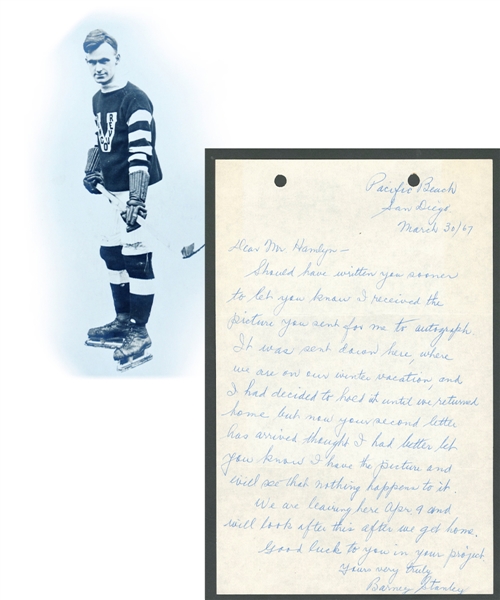 Pacific Beach
San Diego
March 30/67
Dear Mr Hamlyn -
Should have written you sooner
to let you know I received the
picture you sent for me to autograph
It was sent down here, where
we are on our winter vacation, and
I had decided to hold it until we returned
home but now your second letter
has arrived thought I had better let
you know I have the picture and
will see that nothing happens to it.
We are leaving here Apr 9 and
will look after this after we get home.
Good luck to you in your project.
Yours very truly
Barney Stanley